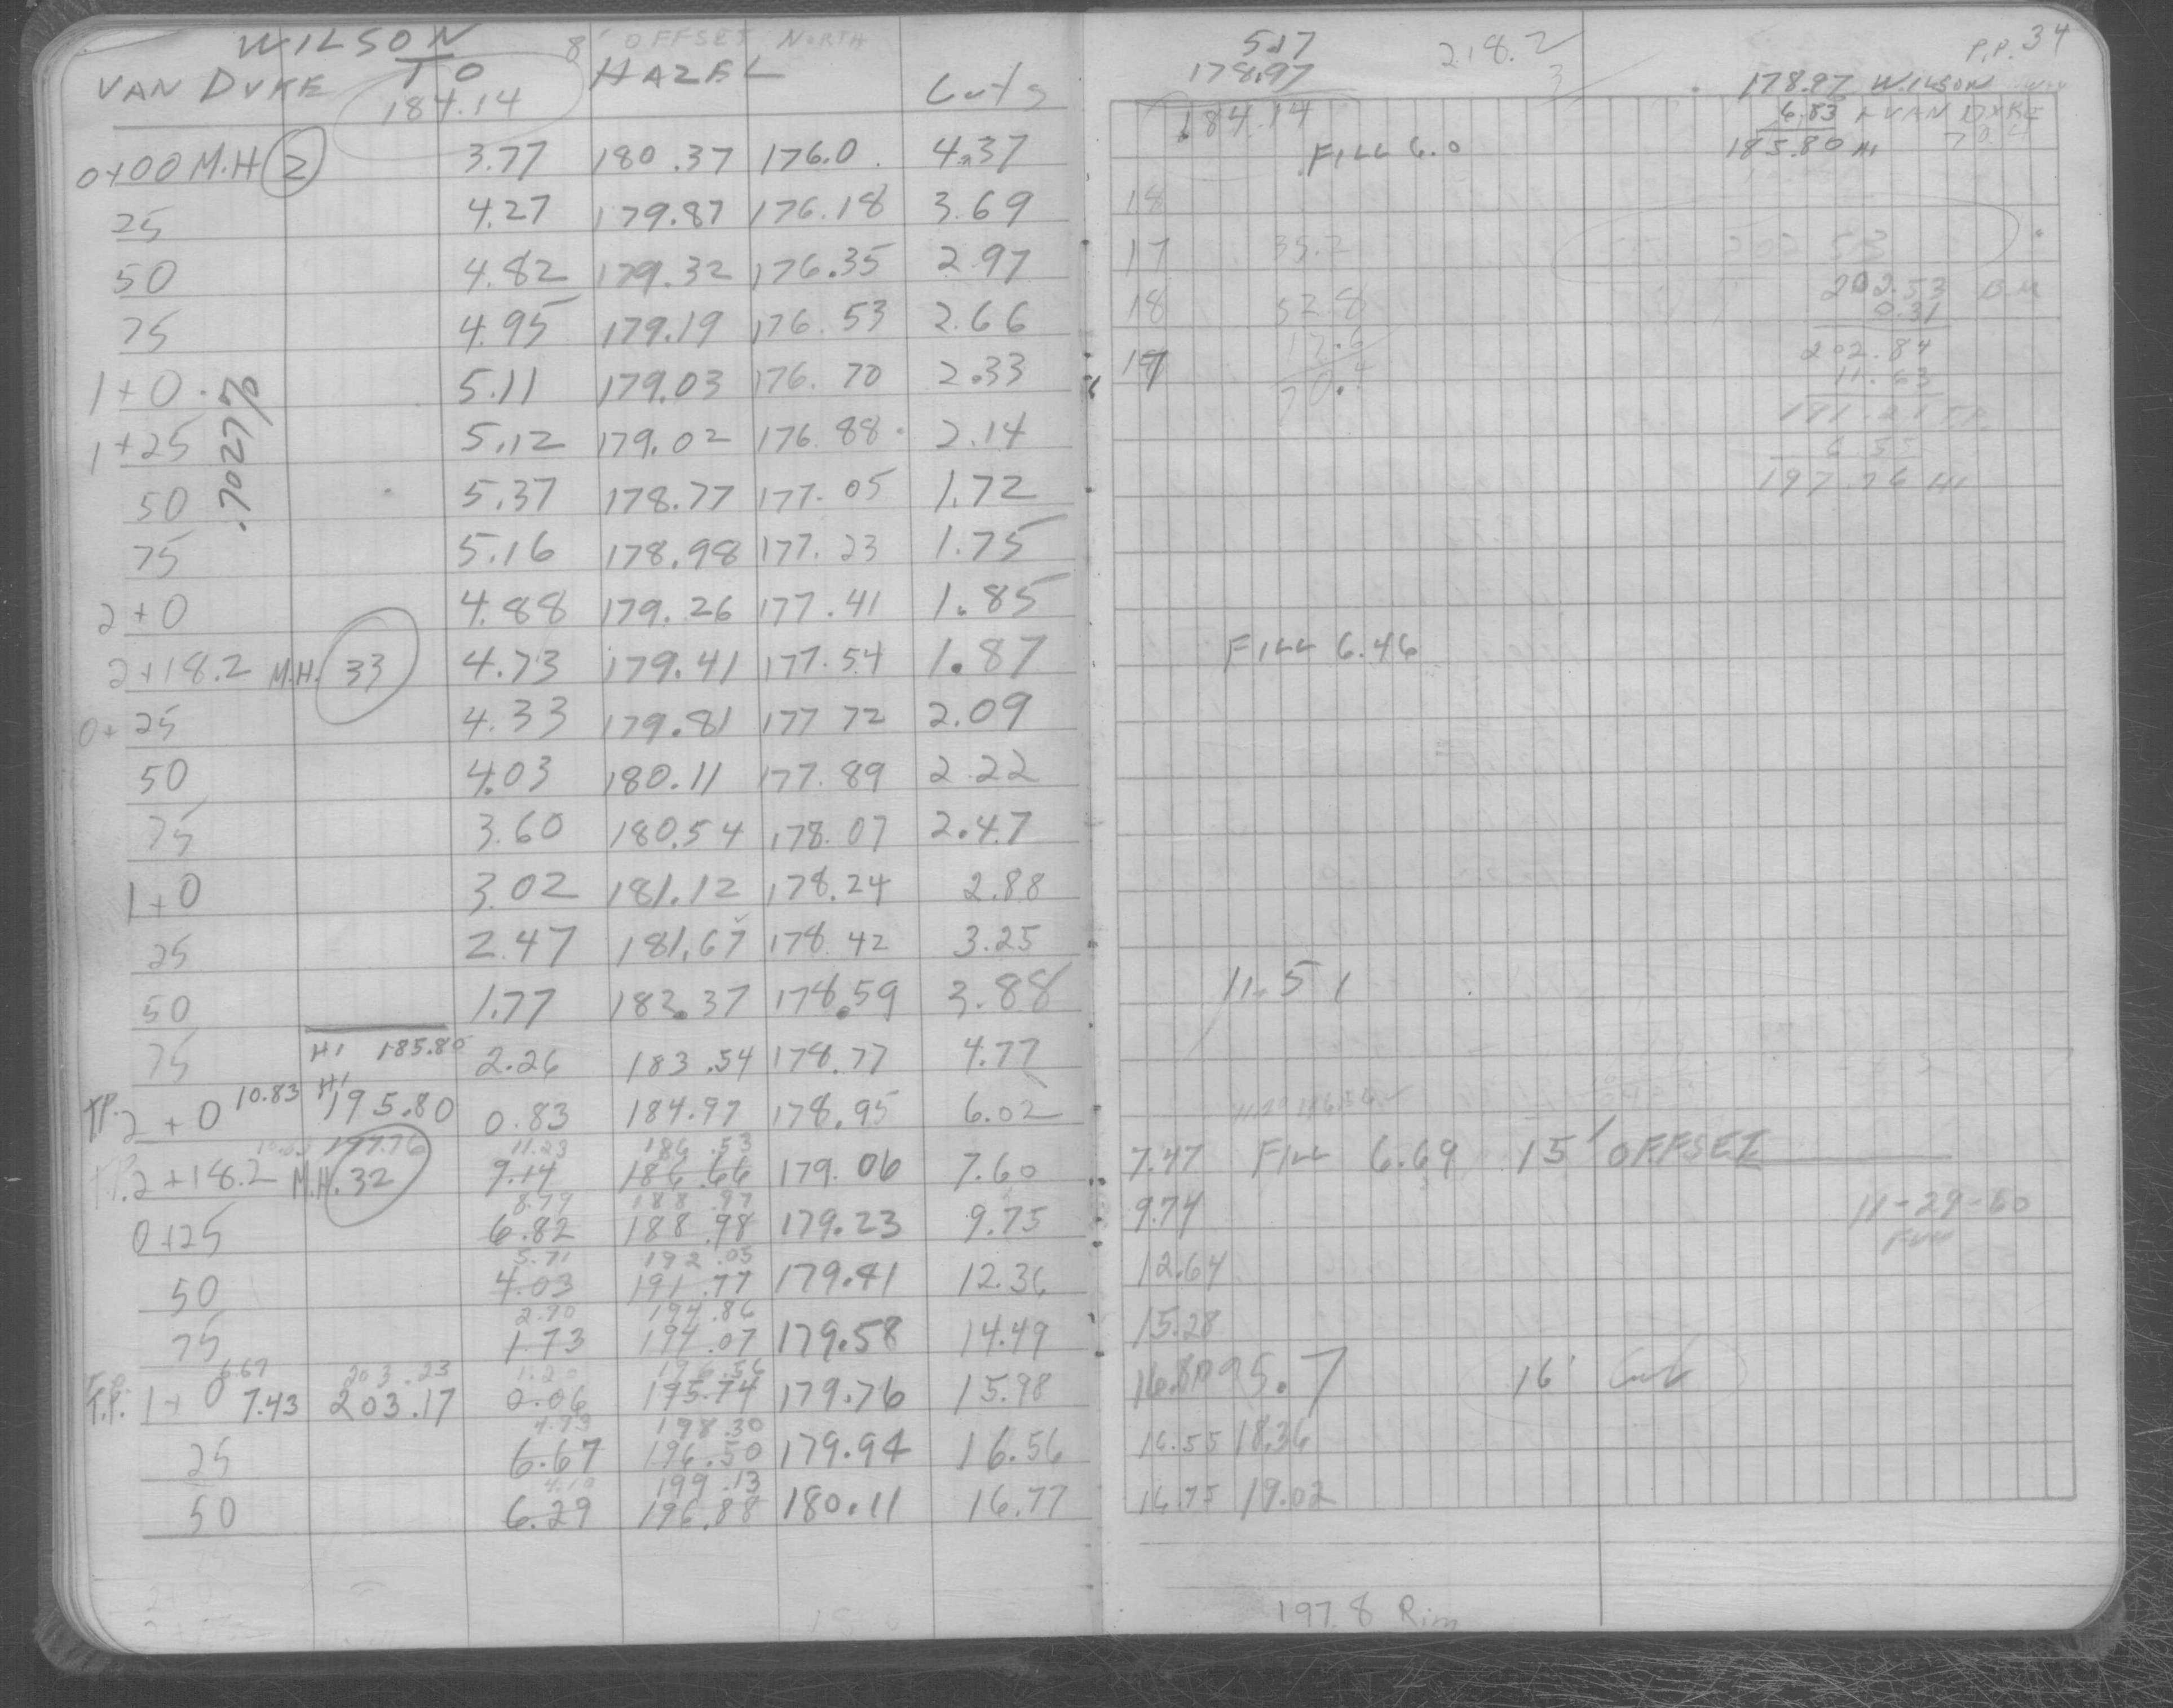 WILSON 8' OFFSET NORTH
VAN DYKE TO HAZEL Cuts
184.14
0+00 M.H 2 3.77 180.37 176.0 4.37
25 4.27 179.87 176.18 3.69
50 4.82 179.32 176.35 2.97
75 4.95 179.19 176.53 2.66
1+0 5.11 179.03 176.70 2.33
1+25 5.12 179.02 176.88 2.14
.7027%
50 5.37 178.77 177.05 1.72
75 5.16 178.98 177.23 1.75
2+0 4.88 179.26 177.41 1.85
2+18.2 M.H. 33 4.73 179.41 177.54 1.87
0+25 4.33 179.81 177 72 2.09
50 4.03 180.11 177.89 2 22
75 3.60 180.54 178.07 2.47
1+0 3.02 181.12 178.24 2.88
25 2.47 181.67 178.42 3.25
50 1.77 182.37 178.59 3.88
75 HI 185.80 2.26 183.54 178.77 4.77
T.P. 2+0 10.83 HI 195.80 0.83 184.97 178.95 6.02
197.76 11.23 186.53
T.P. 2+18.2 M.H. 32 9.14 186.66 179.06 7.60
8.77 188.97
0+25 6.82 188.98 179.23 9.75
5.71 192.05
50 4.03 191.77 179.41 12.36
2.90 194.86
75 1.73 194.07 179.58 14.49
6.67 203.23 1.20 196.56
T.P. 1+0 7.43 203.17 0.06 195.74 179.76 15.98
4.93 198.30
25 6.67 196.50 179.94 16.56
4.10 199.13
50 6.29 196.88 180.11 16.77
5.17 218.2 P.P. 34
178.97 3 178.97 WILSON
184.14 6.83 + VAN DYKE
FILL 6.0 185.80 HI 70.4
18
17 35.2 202 53
18 52.8 202.53 B.M
17.6 0.31
17 70.4 202.84
11.63
191.21 T.P.
6 55
197.76 HI
FILL 6.46
11.51
7.47 FILL 6.69 15' OFFSET
9.74 11-29-60
12.64
15.28
16.80 95.7 16' Cut
16.55 18.36
16.75 19.02
197.8 Rim